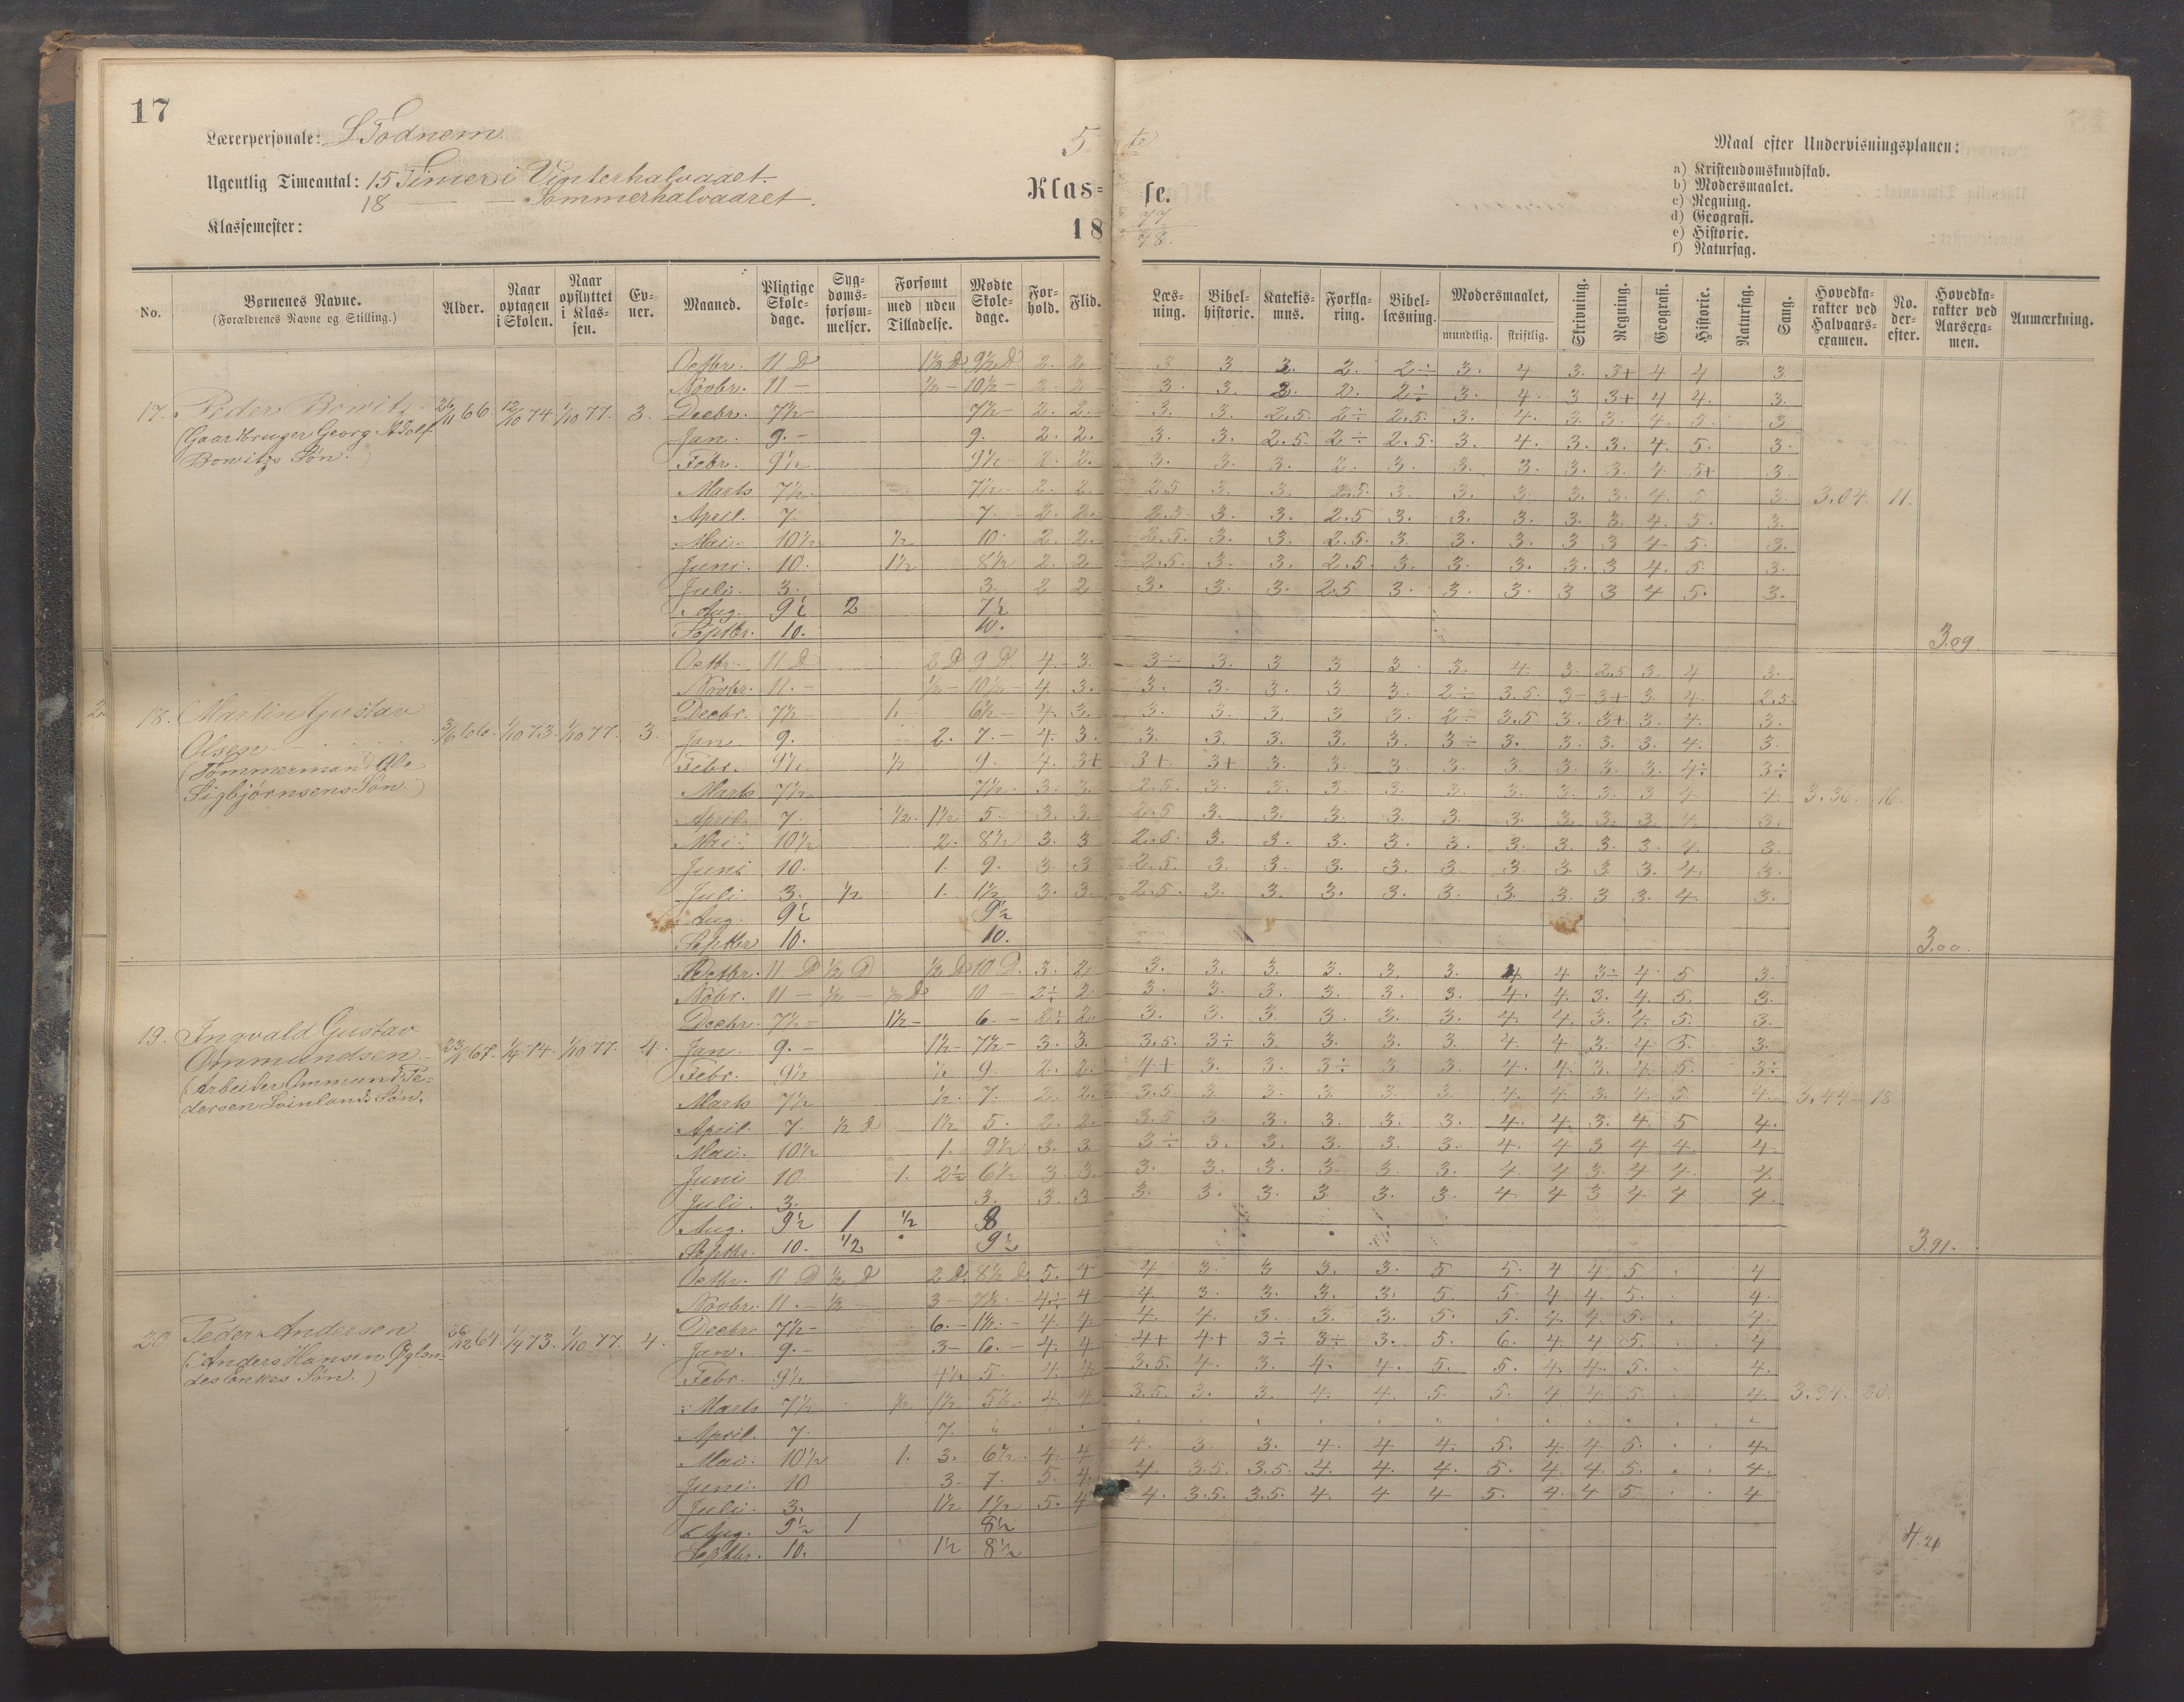 17
Lærerpersonale: L Todnem
Ugentlig Timeantal: 15 Timer i Vinterhalvaaet.
18 — — Sommerhalvaaret.
Klassemester:
5 te
Klas= se.
18 77/78.
Maal efter Undervisningsplanen:
a) Kristendomskundskab.
b) Modersmaalet.
c) Regning.
d) Geografi.
e) Historie.
f) Naturfag.
No. Børnenes Navne. (Forældrenes Navne og Stilling.) Alder. Naar optagen i Skolen. Naar opflyttet i Klassen. Evner. Maaned. Pligtige Skoledage. Sygdomsforsømmelser. Forsømt med uden Tilladelse. Mødte Skoledage. Forhold. Flid. Læsning. Bibelhistorie. Katekismus. Forklaring. Bibellæsning. Modersmaalet, mundtlig. skriftlig. Skrivning. Regning. Geografi. Historie. Naturfag. Sang. Hovedkarakter ved Halvaarsexamen. No. derefter. Hovedkarakter ved Aarsexamen. Anmærkning.
17. Peder Bowitz
(Gaardbruger Georg Adolf
Bowitzs Søn.)
26/11 66 12/10 74 1/10 77. 3.
Octbr. 11 D 1½ D 9½ D 2. 2 3 3 3. 2. 2÷ 3. 4 3. 3+ 4 4 3
Novbr. 11 — ½ — 10½ — 2. 2 3. 3. 3. 2. 2÷ 3. 4. 3 3+ 4 4. 3.
Decbr. 7½ — 7½ — 2. 2. 3. 3. 2.5. 2÷ 2.5. 3. 4. 3. 3. 4. 5. 3
Jan. 9. — 9. 2. 2. 3. 3. 2.5. 2÷ 2.5. 3. 4. 3. 3. 4. 5. 3.
Febr. 9½ 9½ 2. 2. 3. 3. 3. 2. 3. 3. 3. 3. 3. 4. 5+ 3.
Marts 7½. 7½. 2. 2. 2.5 3. 3. 2.5. 3. 3. 3. 3. 3. 4. 5. 3. 3.04. 11.
April. 7. 7. 2. 2. 2.5. 3. 3. 2.5 3. 3. 3. 3. 3. 4. 5. 3.
Mai. 10½ ½ 10. 2. 2. 2.5. 3. 3. 2.5. 3. 3. 3. 3 3 4. 5. 3.
Juni. 10. 1½ 8½ 2. 2 2.5. 3. 3. 2.5. 3. 3. 3. 3. 3 4. 5 3.
Juli. 3. 3. 2 2 3. 3. 3. 2.5 3. 3. 3. 3 3 4 5. 3.
Aug. 9½ 2 7½
Septbr. 10. 10.
3.09.
18. Martin Gustav
Olsen
(Tømmermand Ole
Sigbjørnsens Søn)
3/6 66. 1/10 73. 1/10 77. 3.
Octbr. 11 D 2 D 9 D 4. 3. 3÷ 3. 3 3 3. 3. 4. 3. 2.5 3. 4 3.
Novbr. 11. — ½ — 10½ — 4. 3. 3. 3. 3. 3 3. 2÷ 3.5. 3— 3+ 3. 4. 2.5.
Decbr. 7½ — 1. 6½ — 4. 3. 3. 3. 3. 3 3. 2÷ 3.5 3. 3+ 3. 4. 3.
Jan 9. 2. 7. — 4. 3. 3. 3. 3. 3. 3. 3÷ 3. 3. 3. 3. 4. 3.
Febr. 9½ ½ 9. 4. 3+ 3+ 3+ 3. 3. 3. 3. 3. 3. 3. 3. 4÷ 3÷
Marts 7½. 7½. 3. 3. 2.5. 3. 3. 3. 3. 3. 3. 3. 3. 3 4 4. 3.36. 16.
April. 7. ½. 1½ 5. 3. 3. 2.5 3. 3. 3. 3. 3. 3. 3. 3. 3. 4. 3.
Mai. 10½ 2. 8½ 3. 3 2.5. 3. 3. 3. 3. 3. 3. 3. 3. 3. 4. 3.
Juni 10. 1. 9. 3. 3 2.5. 3. 3. 3. 3. 3. 3 3. 3 3. 4. 3.
Juli. 3. ½ 1. 1½ 3. 3. 2.5. 3. 3. 3. 3. 3. 3. 3. 3 3. 4. 3.
Aug. 9½ 9½
Septbr 10. 10.
3.00.
19. Ingvald Gustav
Ommundsen
(Arbeider Ommund Pe-
dersen Svinlands Søn.
4.
Octbr. 11 D ½ D ½ D 10 D. 3. 2 3. 3. 3. 3. 3. 3. 4 4 3÷ 4. 5 3.
Nobr. 11 — ½ — ½ D 10 — 2÷ 2 3. 3. 3. 3. 3. 3. 4. 4. 3. 4. 5. 3.
Decbr. 7½ — 1½ — 6. — 2÷ 2. 3. 3. 3. 3. 3. 3. 4. 4. 3. 4. 5. 3.
Jan. 9. — 1½ — 7½ — 3. 3. 3.5. 3÷ 3. 3. 3. 3. 4. 4 3. 4 5. 3.
Febr. 9½ ½ 9. 2. 2. 4+ 3. 3. 3÷ 3. 3. 4. 4. 3. 4. 5. 3÷
Marts 7½ ½. 7. 2. 2. 3.5 3 3. 3. 3. 3. 4. 4. 3. 4. 5. 4. 3.44 18
April. 7. ½ D 1½ 5. 2. 2. 3.5 3. 3. 3. 3. 3. 4. 4. 3. 4. 5 4.
Mai. 10½ 1. 9½ 3. 3 3÷ 3. 3. 3. 3. 3. 4. 4. 3 4 4 4.
Juni 10. 1. 2½ 6½ 3. 3. 3. 3. 3. 3 3. 3. 4. 4 3. 4 4. 4.
Juli. 3. 3. 3. 3 3. 3. 3. 3 3. 3. 4. 4 3 4 4 4.
Aug. 9½ 1 ½ 8
Septbr. 10. ½ 9½
3.91.
20 Peder Andersen
(Anders Hansen Øglæn-
des Enkes Søn.)
26/12 64. 1/10 77. 4.
Octbr. 11 D ½ D 2 D. 8½ D. 5. 4 4 3. 3 3. 3. 5 5. 4 4 5 4
Novbr. 11. — ½ — 3 — 7½. 4÷ 4 4 3. 3. 3. 3. 5 5. 4 4. 5. 4.
Decbr 7½ — 6. — 1½. — 4. 4. 4. 4. 3. 3. 3. 5. 5. 4. 4. 5. 4.
Jan. 9. — 3 — 6. — 4. 4. 4+ 4+ 3÷ 3÷ 3. 5. 6. 4. 4 5. 4
Febr. 9½ 4½ 5. 4. 4. 3.5. 4. 3. 4. 4. 5. 5. 4. 4. 5. 4.
Marts 7½ ½ 1½ 5½. 4. 4 3.5. 3. 3. 4. 4. 5. 5. 4 4. 5. 4. 3.94. 20.
April. 7. 7.
Mai. 10½ 1. 3. 6½ 4. 4 4. 3. 3. 4. 4 4. 5. 4. 4. 5. 4.
Juni. 10 3. 7. 5. 4. 4. 3.5. 3.5. 4. 4. 4. 5. 4. 4. 5. 4.
Juli. 3. 1½ 1½ 5. 4 4. 3.5. 3.5. 4. 4 4 5. 4. 4 5 4
Aug. 9½ 1 8½
Septbr. 10. 1½ 8½
4.21